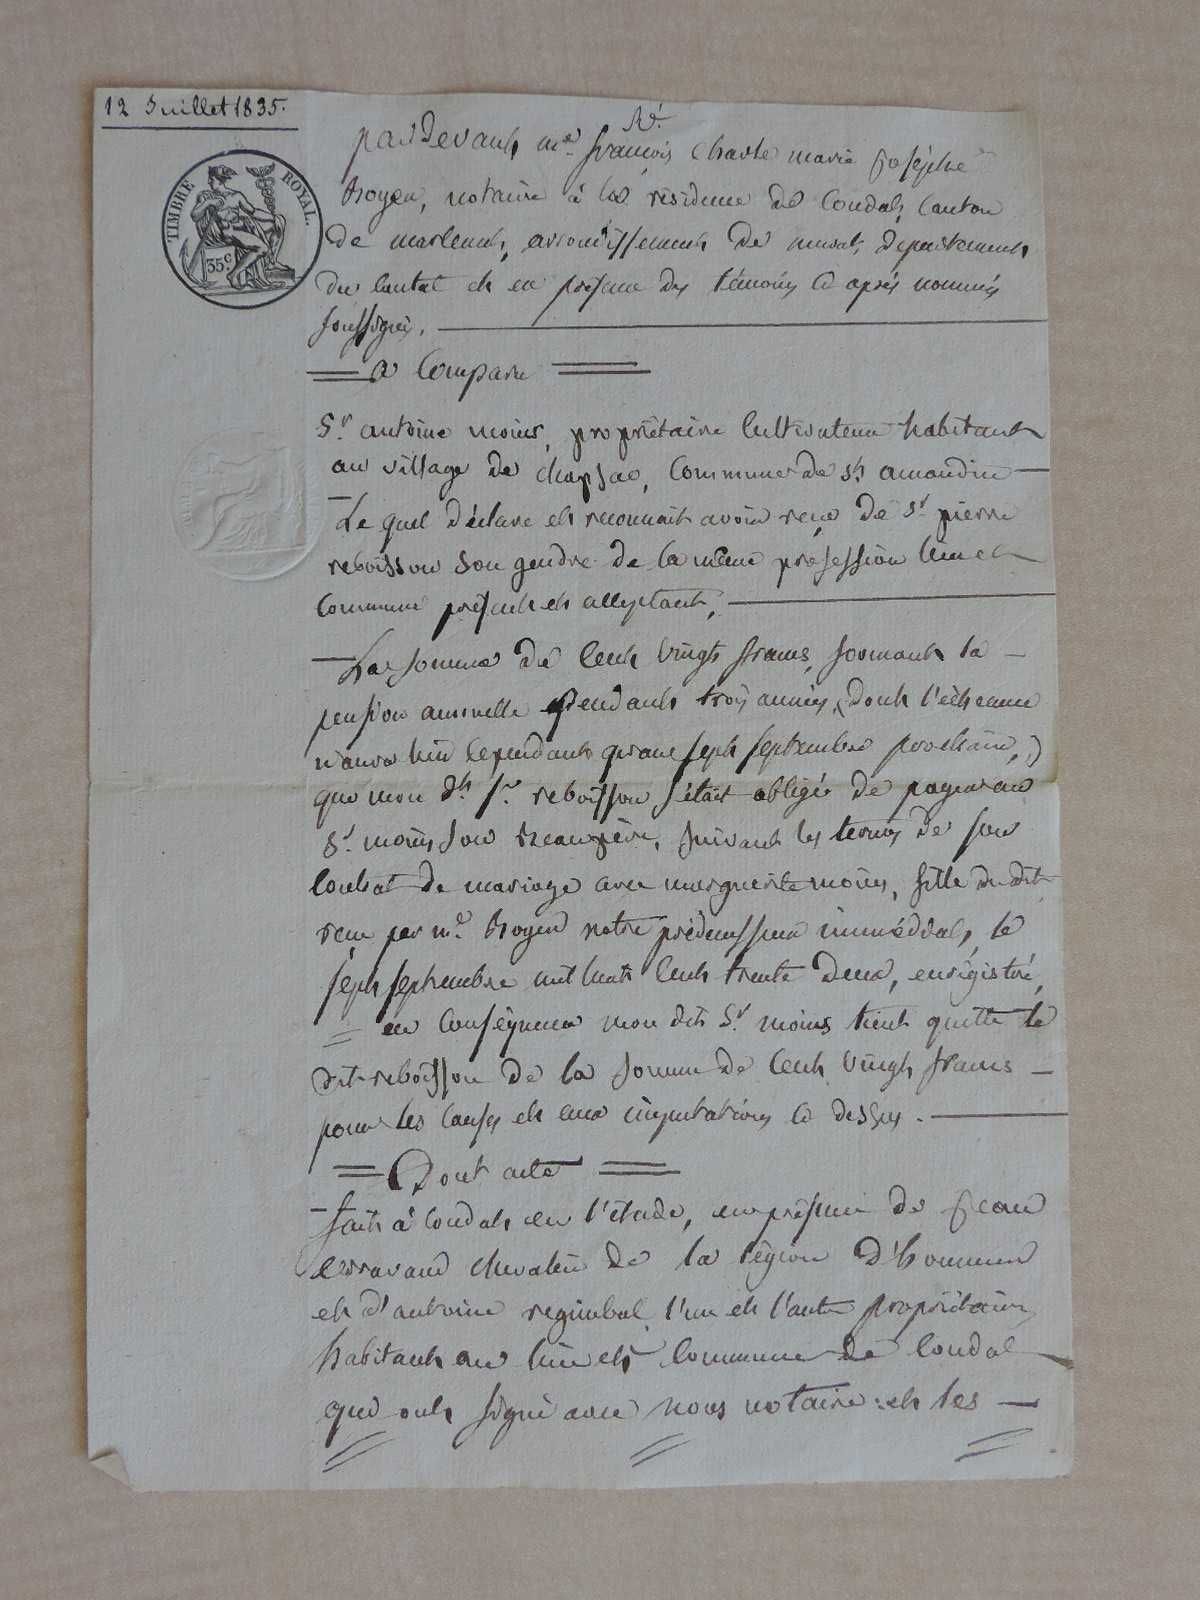 12 Juillet 1835.
TIMBRE ROYAL.
35 c
Ré.
par devant me françois Charle marie joséphe
troyen, notaire à la résidence de Condat, Canton
de marlenat, arrondissement de murat, departement
du Cantal et en présence des témoins ci après nommés
soussignés.
a Comparu
Sr antoine moins, propriétaire Cultivateur habitant
au village de chapsac, Commune de St amandin
Le quel déclare et reconnait avoir recu de Sr pierre
reboisson son gendre de la même proféssion lieu et
Commune présent et acceptant,
La somme de Cent vingt francs, formant la
pension annuelle pendant trois années, (dont l'échéance
n'aura lieu Cependant qu'au sept septembre prochain,)
que mon dt sr reboisson s'était obligé de payer au
Sr moins son beaupère, suivant les termes de son
Contrat de mariage avec marguerite moins, fille du dit
recu par me troyen notre prédécesseur immédiat, le
sept septembre mil huit Cent trente deux, enrégistré,
en Conséquence mon dit Sr moins tient quitte le
dit reboisson de la somme de Cent vingt francs
pour les Causes et aux imputations ci dessus.
Dont acte
fait à Condat en l'étude, en présence de jean
chevalier de la légion d'honneur
et d'antoine regimbal, l'un et l'autre propriétaires
habitant au lieu et Commune de Condat
qui ont signé avec nous notaire et les